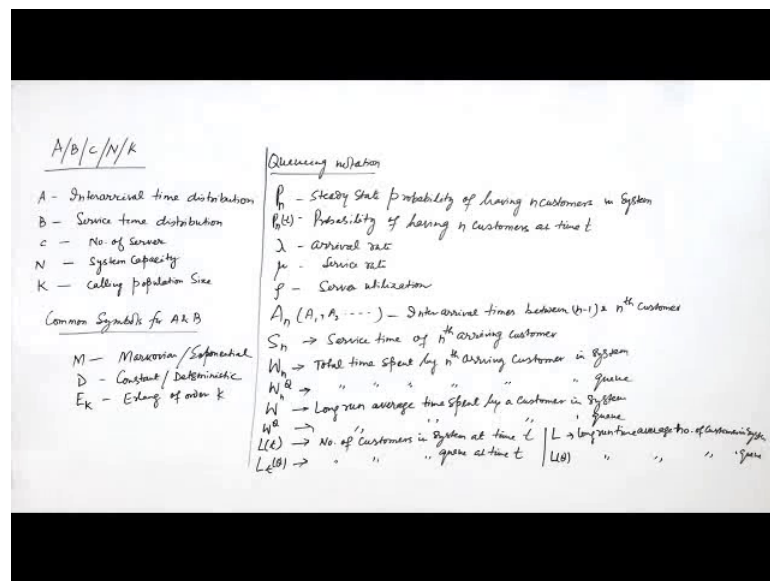 A/B/C/N/K
A - Interarrival time distribution
B - Service time distribution
C - No. of Server
N - System Capacity
K - Calling population Size
Common Symbols for A & B
M - Markovian/Exponential
D - Constant/Deterministic
Ek - Erlang of order k
Queueing notation
Pn - Steady State probability of having n customers in System
Pn(t) - Probability of having n customers at time t
λ - arrival rate
μ - Service rate
ρ - Server utilization
An (A1, A2 ....) - Interarrival times between (n-1) & nth customer
Sn → Service time of nth arriving customer
Wn → Total time spent by nth arriving customer in system
WnQ → " " " " " " queue
W → Long run average time spent by a customer in system
WQ → " " " " queue
L(t) → No. of Customers in System at time t
Lt(Q) → " " " queue at time t
L → long run time average no. of customer in system
L(Q) " " " queue